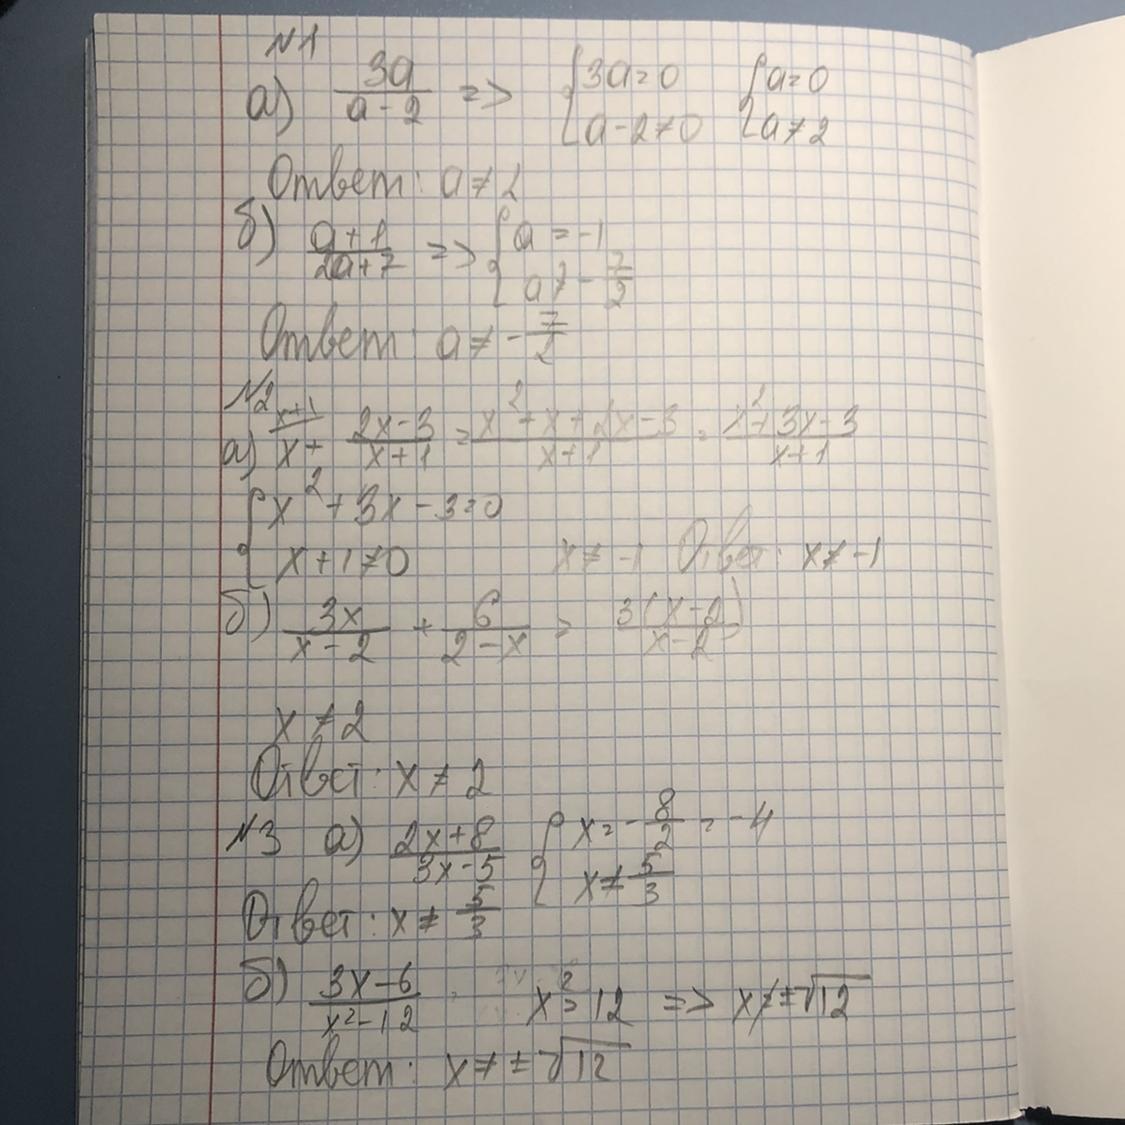 N1
а) 3a/(a-2) => {3a=0 {a=0
{a-2≠0 {a≠2
Ответ: a≠2
б) (a+1)/(2a+7) => {a=-1
{a≠-7/2
Ответ: a≠-7/2
N2
а) x+ (2x-3)/(x+1) = (x²+x+2x-3)/(x+1) = (x²+3x-3)/(x+1)
{x²+3x-3=0
{x+1≠0 x≠-1 Ответ: x≠-1
б) 3x/(x-2) + 6/(2-x) = 3(x-2)/(x-2)
x≠2
Ответ: x≠2
N3 а) (2x+8)/(3x-5) {x=-8/2=-4
{x≠5/3
Ответ: x≠5/3
б) (3x-6)/(x²-12) x²=12 => x≠±√12
Ответ: x≠±√12